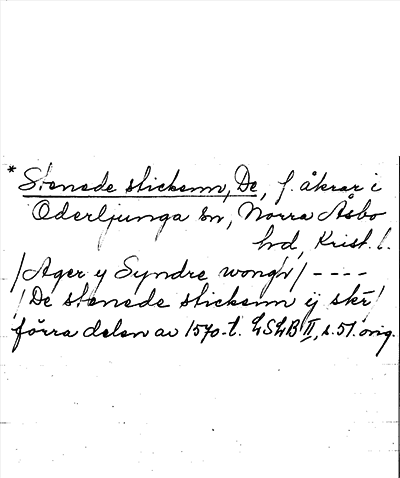 * Stenede stickenn, De, f. åkrar i
Oderljunga sn, Norra Åsbo
hd, Krist. l.
/Ager y Syndre wongh/ ----
/De stenede stickenn ij skr/
förra delen av 1570-t. LSLB II, s. 51. orig.